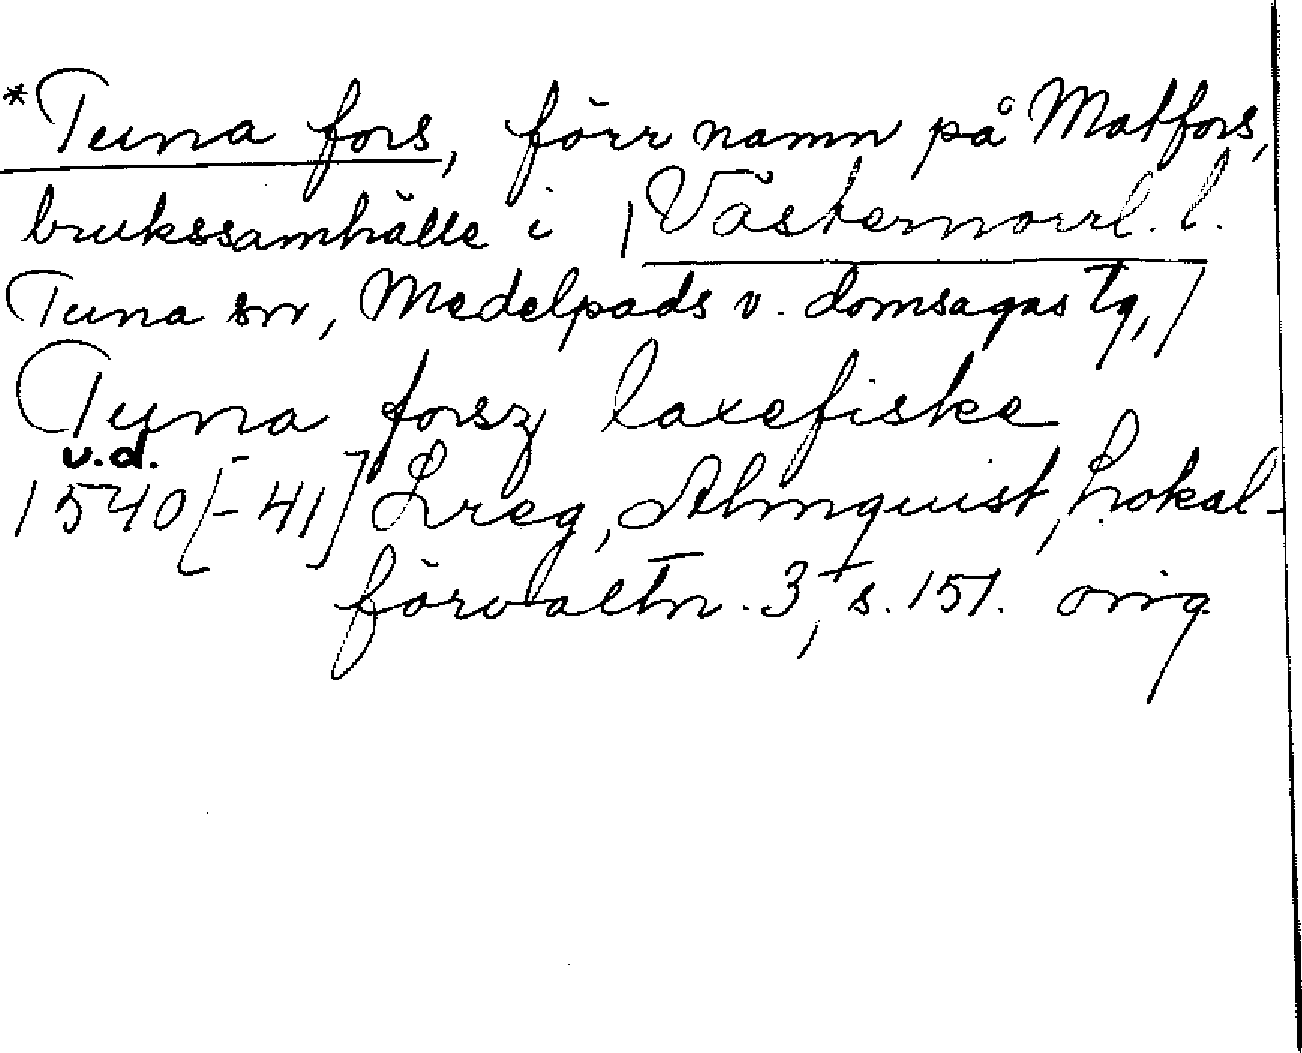 *Tuna fors, förr namn på Matfors,
brukssamhälle i | Västernorrl. l.
Tuna sn, Medelpads v. domsagas tg, /
Tuna forsz laxefiske
u.d.
1540 [-41] Lreg, Almquist, Lokal-
förvaltn. 3, s. 151. orig